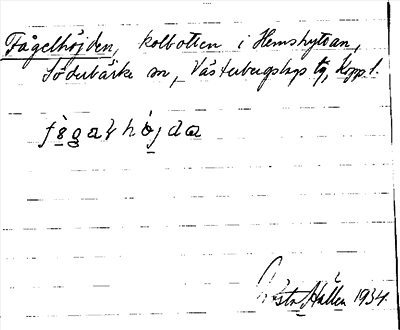 Fågelhöjden, kolbotten i Hemshyttan,
Söderbärke sn, Västerbergslags tg, Kopp. l.
fògaɫhö̀jda
Gösta Hallén 1934.